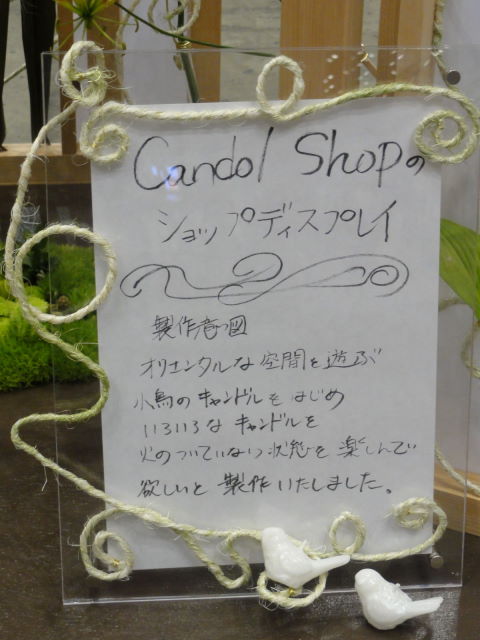 Candol Shopの
ショップディスプレイ
製作意図
オリエンタルな空間を遊ぶ
小鳥のキャンドルをはじめ
いろいろなキャンドルを
火のついていない状態を楽しんで
欲しいと製作いたしました。